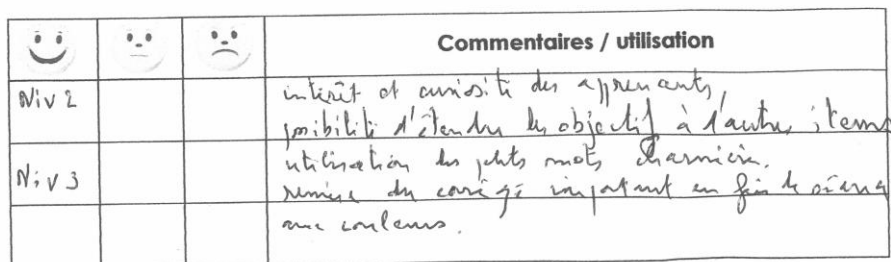 Commentaires / utilisation
Niv 2
intérêt et curiosité des apprenants,
possibilité d'étendre les objectif à d'autres items
utilisation des petits mots charnière.
Niv 3
remise du corrigé important en fin de séance
aux couleurs.